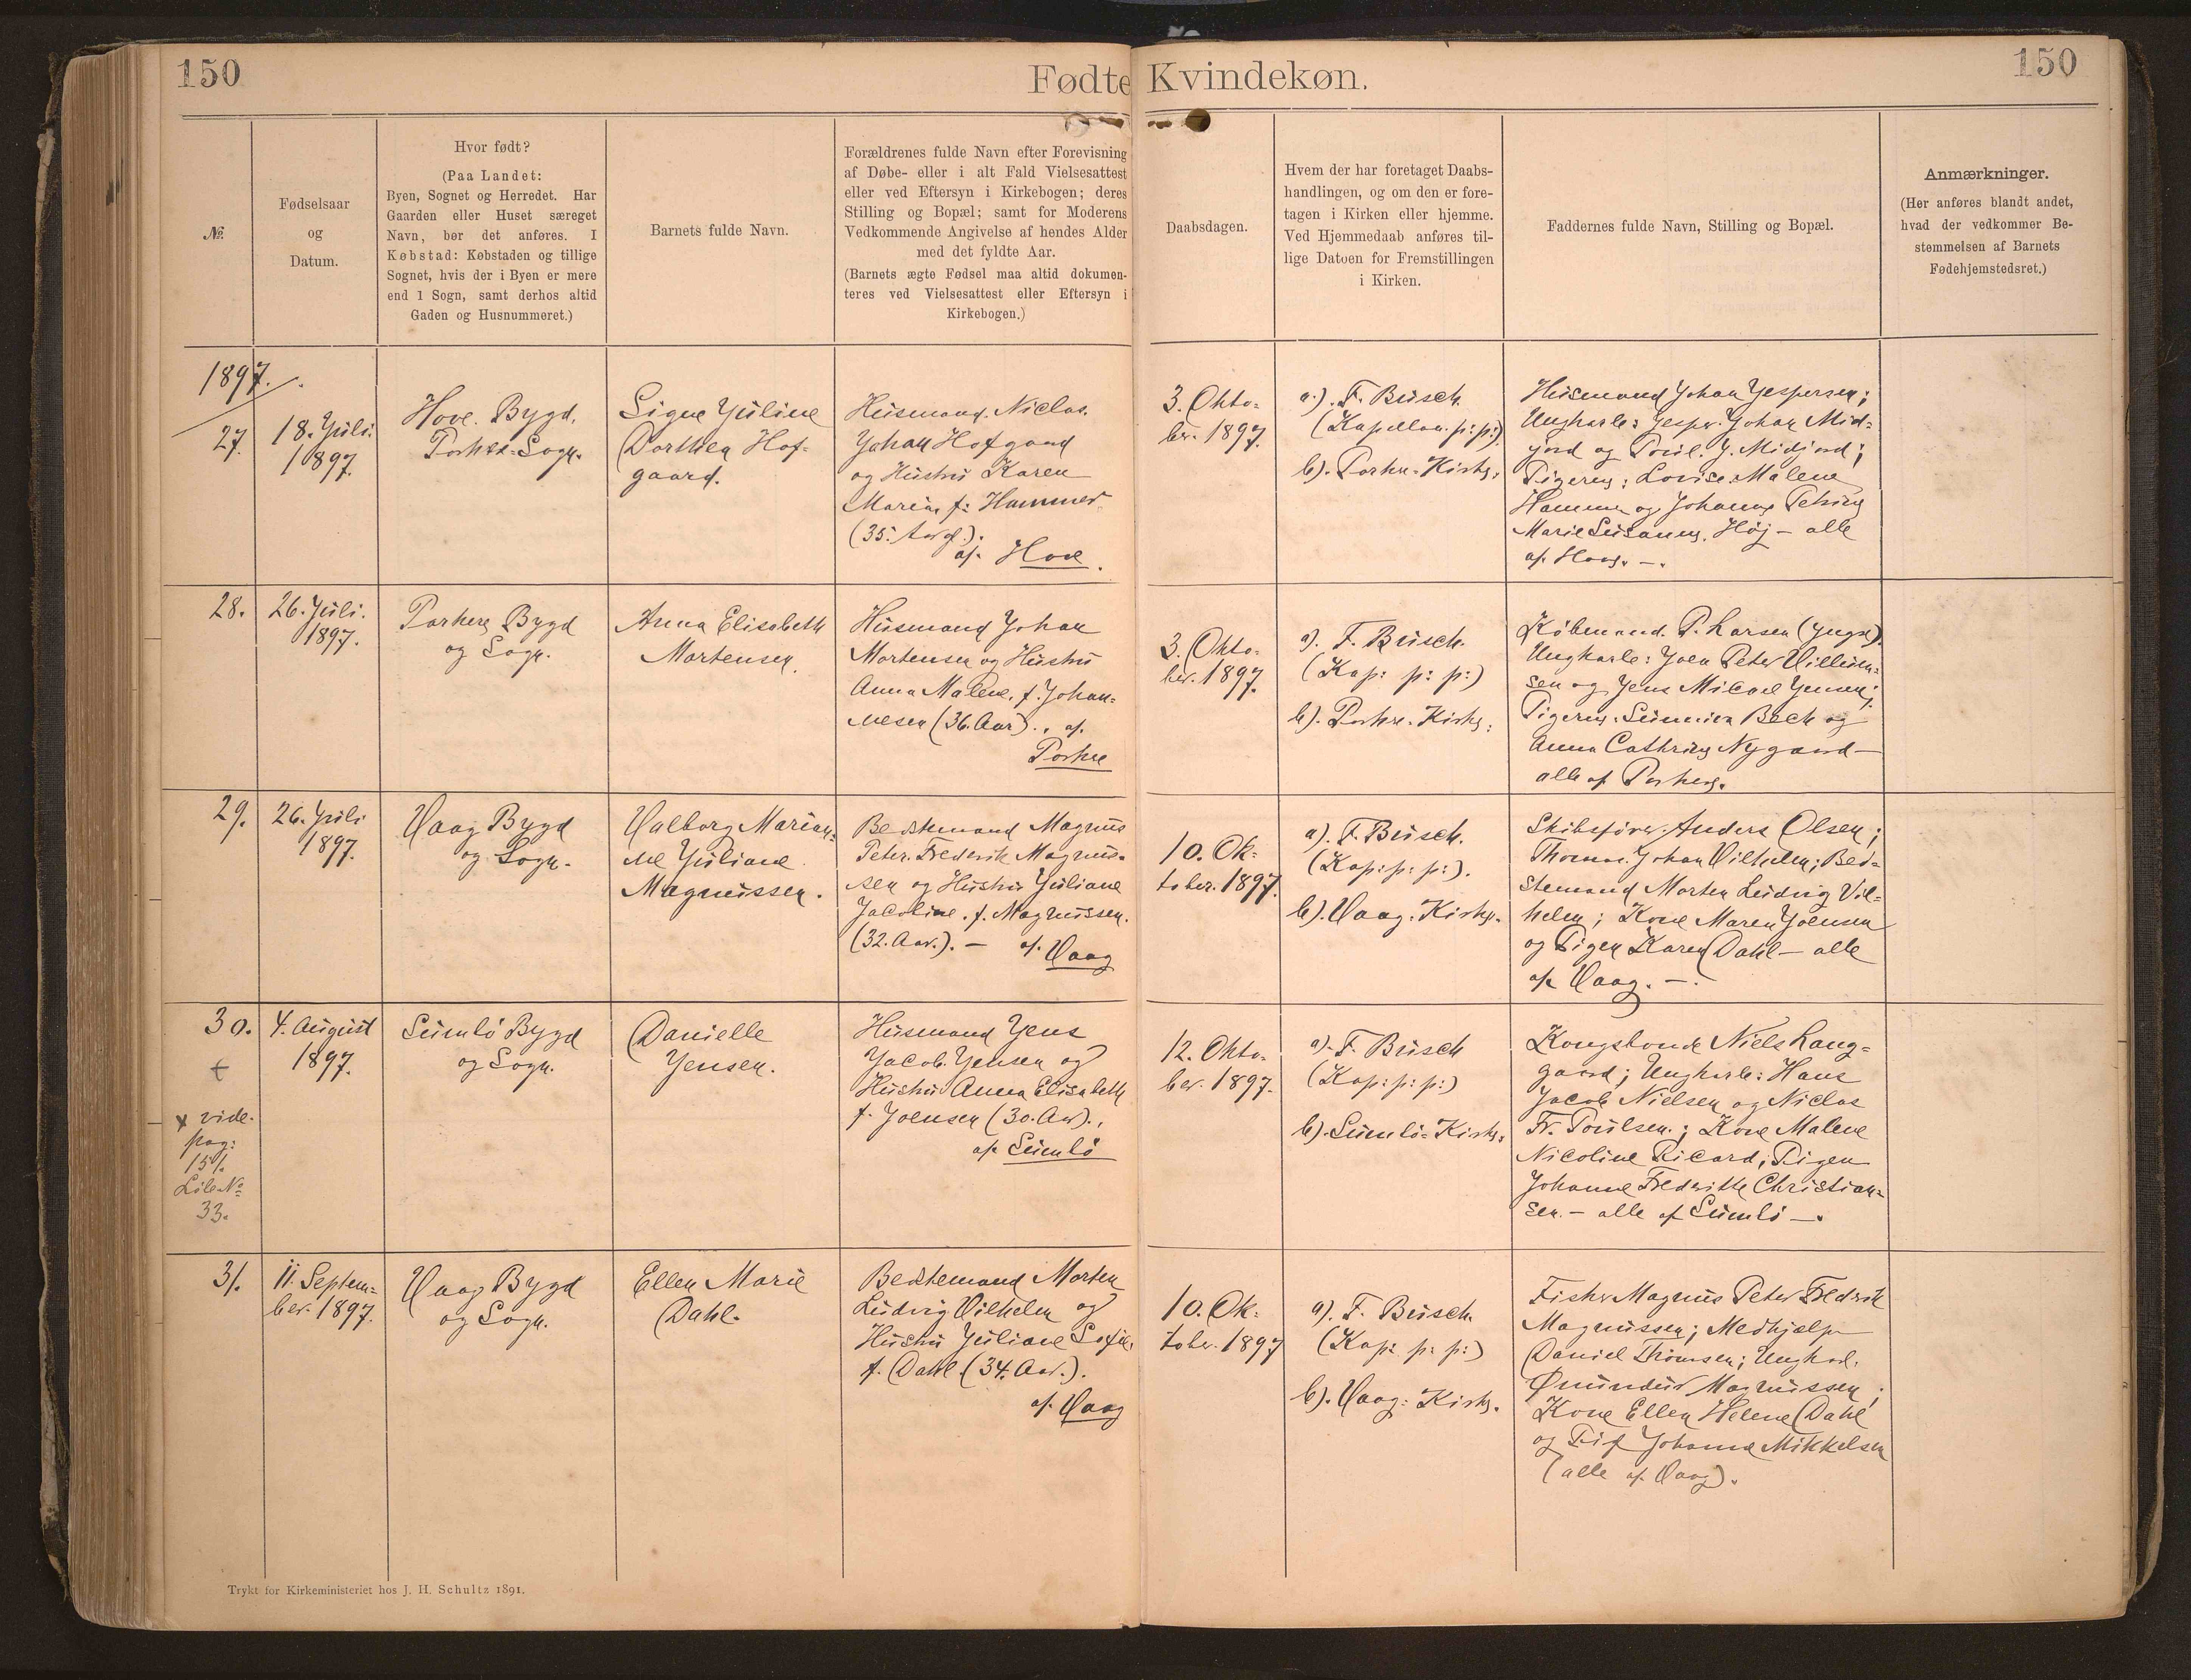 150
Fødte Kvindekøn.
150
№
Fødselsaar
og
Datum.
Hvor født?
(Paa Landet:
Byen, Sognet og Herredet. Har
Gaarden eller Huset særeget
Navn, bør det anføres. I
Købstad: Købstaden og tillige
Sognet, hvis der i Byen er mere
end 1 Sogn, samt derhos altid
Gaden og Husnummeret.)
Barnets fulde Navn.
Forældrenes fulde Navn efter Forevisning
af Døbe- eller i alt Fald Vielsesattest
eller ved Eftersyn i Kirkebogen; deres
Stilling og Bopæl; samt for Moderens
Vedkommende Angivelse af hendes Alder
med det fyldte Aar.
(Barnets ægte Fødsel maa altid dokumen-
teres ved Vielsesattest eller Eftersyn i
Kirkebogen.)
Daabsdagen.
Hvem der har foretaget Daabs-
handlingen, og om den er fore-
tagen i Kirken eller hjemme.
Ved Hjemmedaab anføres til-
lige Datoen for Fremstillingen
i Kirken.
Faddernes fulde Navn, Stilling og Bopæl.
Anmærkninger.
(Her anføres blandt andet,
hvad der vedkommer Be-
stemmelsen af Barnets
Fødehjemstedsret.)
1897.
27.
18. Juli.
1897.
Hove. Bygd,
Porkere-Sogn.
Signe Juline
Dorthea Hof-
gaard.
Husmand. Niclas.
Johan Hofgaard
og Hustru Karen
Maria, f: Hammer
(35. Aar gl.).
af. Hove.
3. Okto-
ber. 1897.
a). F. Busch.
(Kapellan. p: p:).
b). Porkere-Kirke.
Husmand Johan Jespersen;
Ungkarle: Jesper Johan Mid-
jord og Poul. J. Midjord;
Pigerne: Lovise Malene
Hammer og Johanne Petrine
Marie Susanne Høj - alle
af. Hove. -.
28.
26. Juli.
1897.
Porkere Bygd
og Sogn.
Anna Elisabeth
Mortensen.
Husmand Johan
Mortensen og Hustru
Anna Malene, f. Johan-
nesen (36. Aar)., af.
Porkere
3. Okto-
ber. 1897.
a). F. Busch.
(Kap: p: p:)
b). Porkere. Kirke.
Købmand. P. Larsen (yngre).
Ungkarle: Joen Peter Villum-
sen og Jens Micael Jensen;
Pigerne: Sunniva Bech og
Anna Cathrine Nygaard -
alle af Porkere.
29.
26. Juli
1897.
Vaag Bygd
og Sogn.
Valborg Marian-
ne Juliane
Magnussen.
Bedstemand Magnus
Peter. Frederik Magnus-
sen og Hustru Juliane
Jacoline. f. Magnussen.
(32. Aar.). - af. Vaag
10. Ok-
tober. 1897.
a). F. Busch.
(Kap: p: p:).
b). Vaag. Kirke.
Skibsfører. Anders Olsen;
Thomas. Johan Vilhelm; Bed-
stemand Morten Ludvig Vil-
helm; Kone Maren Joensen
og Pigen Karen Dahl - alle
af Vaag. -.
30.
4. August
1897.
Sumbø Bygd
og Sogn.
Danielle
Jensen.
Husmand Jens
Jacob Jensen og
Hustru Anna Elisabeth
f. Joensen (30. Aar).,
af. Sumbø
12. Okto-
ber. 1897.
a). F. Busch
(Kap: p: p:)
b). Sumbø-Kirke.
Kongsbonde Niels Lang-
gaard; Ungkarle: Hans
Jacob Nielsen og Niclas
Fr. Poulsen.; Kone Malene
Nicoline Ricard; Pigen
Johanne Frederikke Christian-
sen. - alle af Sumbø -.
x vide.
pag:
151.
Løbe№
33.
31.
11. Septem-
ber. 1897.
Vaag Bygd
og Sogn.
Ellen Marie
Dahl.
Bedstemand Morten
Ludvig Vilhelm og
Hustru Juliane Sofie,
f. Dahl (34. Aar.).
af. Vaag
10. Ok-
tober. 1897
a). F. Busch.
(Kap: p: p:)
b). Vaag: Kirke.
Fisker Magnus Peter Frederik
Magnussen; Medhjælper
Daniel Thomsen; Ungkarl.
Ømundur Magnussen;
Kone Ellen Helene Dahl
og Pige Johanne Mikkelsen
(alle af. Vaag).
Trykt for Kirkeministeriet hos J. H. Schultz 1891.